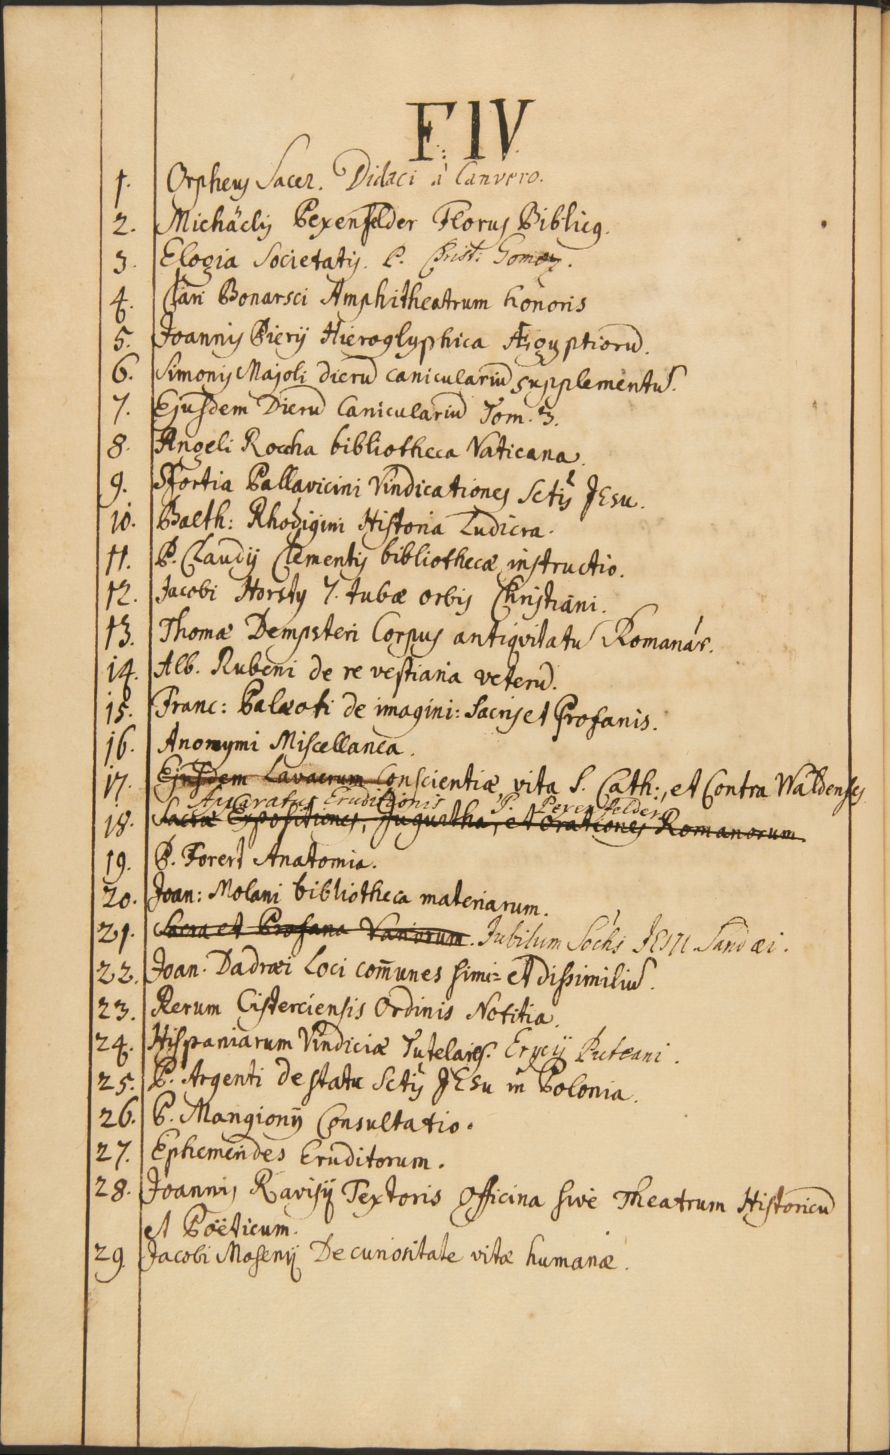 F. IV.
1. Orpheus Sacer. Didaci à Canvero.
2. Michäelis Pexenfelder Florus Biblicq.
3. Elogia Societatis. P. Christ: Gomez.
4. Clari Bonarsci Amphitheatrum honoris
5. Joannis Pierij Hieroglyphica Ægyptiorū.
6. Simonis Majoli dierū caniculariū supplementū.
7. Ejusdem Dierū Caniculariū Tom. 3.
8. Angeli Roccha bibliotheca Vaticana.
9. Sfortia Pallavicini Vindicationes Sctis JEsu.
10. Balth: Rhodigini Historia Ludicra.
11. P. Claudij Clementis bibliothecæ instructio.
12. Jacobi Horsty 7. tubæ orbis Christiani.
13. Thomæ Dempsteri Corpus antiqvitatū Romanar.
14. Alb. Rubeni de re vestiaria veterū.
15. Franc: Palæoti de imagini: Sacris et Profanis.
16. Anonymi Miscellanea.
17. Ejusdem Lavacrum Conscientiæ, vita S. Cath:, et Contra Waldenses
Aparatus Eruditionis P. Pexenfelder
18. Sacræ Expositiones, Jugurtha, et Orationes Romanorum
19. P. Foreri Anatomia.
20. Joan: Molani bibliotheca materiarum.
21. Sacra et Profana Variorum. Jubilum Soctis JESU Sandæi.
22. Joan. Dadræi Loci com̄unes simi= et dissimiliū.
23. Rerum Cisterciensis Ordinis Notitia.
24. Hispaniarum Vindiciæ Tutelares. Erycij Puteani.
25. P. Argenti de statu Sctis JEsu in Polonia.
26. P. Mangionij Consultatio.
27. Ephemerides Eruditorum.
28. Joannis Ravisij Textoris Officina sive Theatrum Historicū
et Poëticum.
29 Jacobi Masenij De curiositate vitæ humanæ.